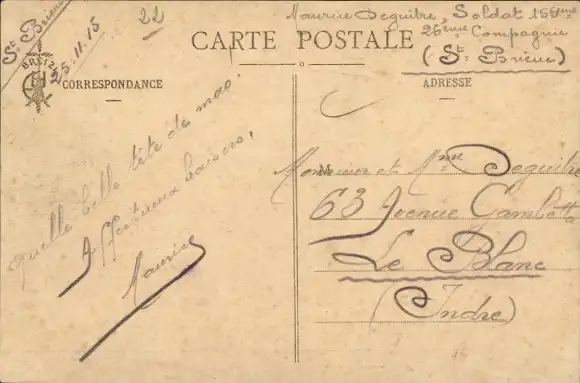 St Brieuc
25.11.15
22
Maurice Deguitre, Soldat
26ème Compagnie
(St Brieuc)
CARTE POSTALE
BREIZ
CORRESPONDANCE
ADRESSE
Quelle belle tête de mao!
Affectueux baisers,
Maurice
Monsieur et Mme Deguitre
63 Avenue Gambetta
Le Blanc
(Indre)